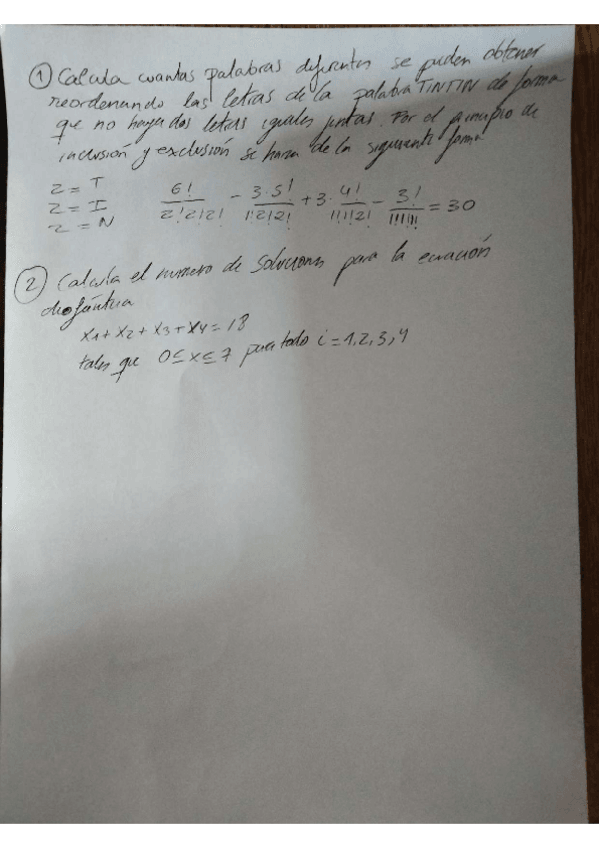 ① Calcula cuantas palabras diferentes se pueden obtener
reordenando las letras de la palabra TINTIN de forma
que no haya dos letras iguales juntas. Por el principio de
inclusión y exclusión se haría de la siguiente forma
2 = T
2 = I
2 = N
6!/2!2!2! - 3·5!/1!2!2! + 3·4!/1!1!2! - 3!/1!1!1! = 30
② Calcula el numero de soluciones para la ecuación
diofántica
x1 + x2 + x3 + x4 = 18
tales que 0 ≤ x ≤ 7 para todo i = 1, 2, 3, 4